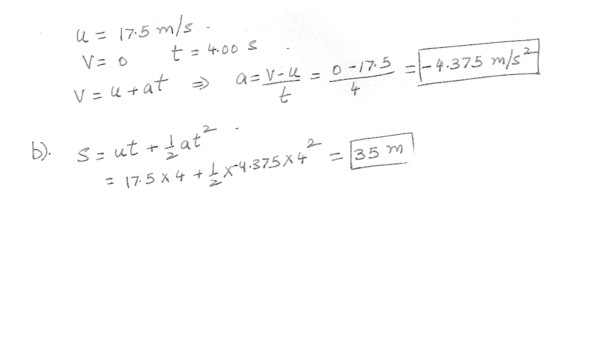 u = 17.5 m/s .
v = 0 t = 4.00 s .
v = u + at ⇒ a = v-u/t = 0-17.5/4 = -4.375 m/s²
b). s = ut + 1/2 at² .
= 17.5 x 4 + 1/2 x -4.375 x 4² = 35 m